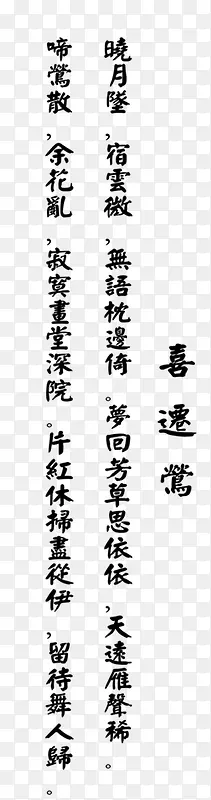 喜遷鶯
曉月墜,宿雲微,無語枕邊倚。夢回芳草思依依,天遠雁聲稀。
啼鶯散,余花亂,寂寞畫堂深院。片紅休掃盡從伊,留待舞人歸。